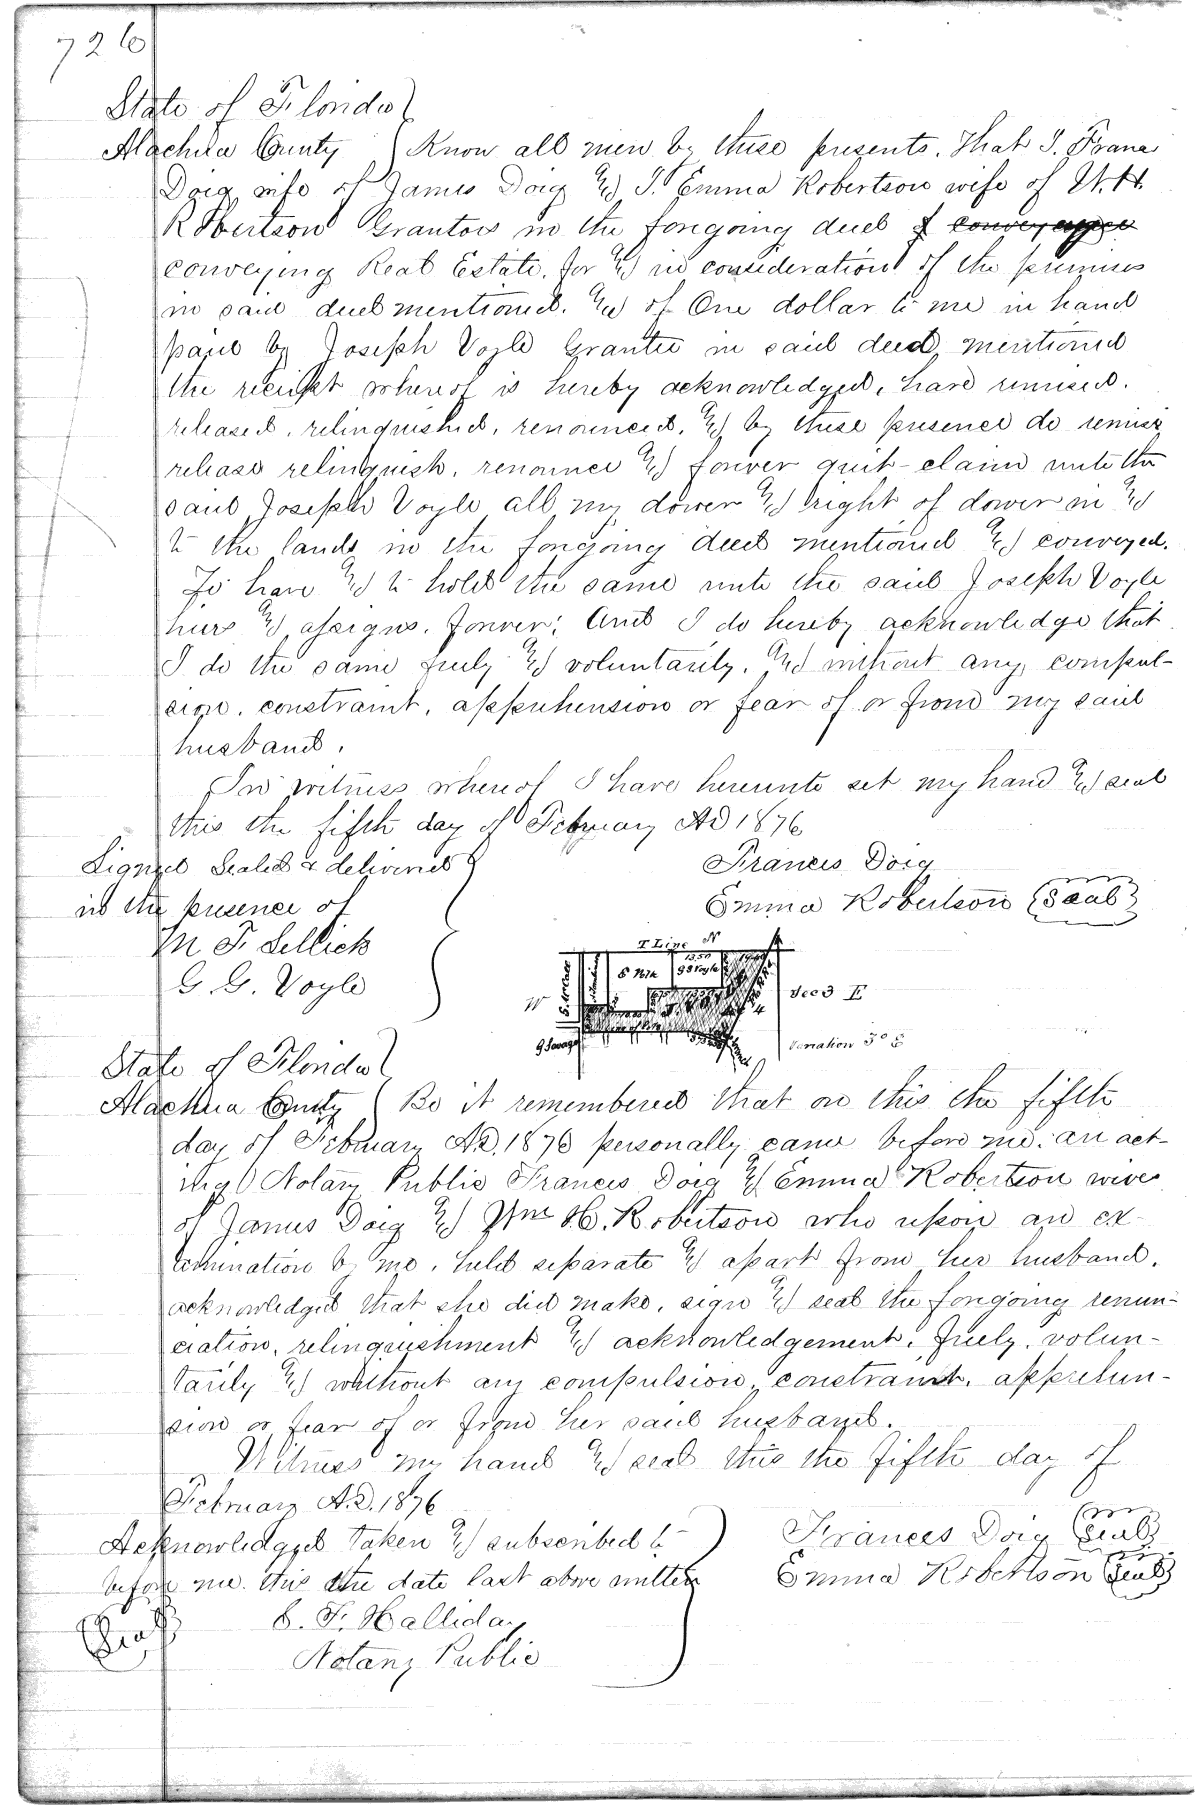 726
State of Florida
Alachua County Know all men by these presents. That I. Frances
Doig wife of James Doig & I. Emma Robertson wife of W. H.
Robertson Grantors in the foregoing deed of conveyance
conveying Real Estate. for & in consideration of the premises
in said deed mentioned. & of One dollar to me in hand
paid by Joseph Voyle Grantee in said deed mentioned
the receipt whereof is hereby acknowledged, have remised.
released. relinquished, renounced. & by these presence do remise
release relinquish. renounce & forever quit-claim unto the
said Joseph Voyle all my dower & right of dower in &
to the lands in the foregoing deed mentioned & conveyed.
To have & to hold the same unto the said Joseph Voyle
heirs & assigns. forever; And I do hereby acknowledge that
I do the same freely & voluntarily. & without any compul-
sion. constraint, apprehension or fear of or from my said
husband.
In witness whereof I have hereunto set my hand & seal
this the fifth day of February AD 1876
Signed Sealed & delivered
in the presence of
M F Sellick
G. G. Voyle
Frances Doig
Emma Robertson Seal
T Line N
13.50
G G Voyle
W
Sec 3 E
G Savage
Variation 5° E
State of Florida
Alachua County Be it remembered that on this the fifth
day of February A.D. 1876 personally came before me. an act-
ing Notary Public Frances Doig & Emma Robertson wives
of James Doig & Wm H. Robertson who upon an ex-
amination by me. held separate & apart from her husband.
acknowledged that she did make, sign & seal the foregoing renun-
ciation, relinquishment & acknowledgement. freely. volun-
tarily & without any compulsion, constraint. apprehen-
sion or fear of or from her said husband.
Witness my hand & seal this the fifth day of
February A.D. 1876
Acknowledged taken & subscribed to
before me. this the date last above written
S. F. Halliday
Notary Public
Seal
Frances Doig Seal
Emma Robertson Seal